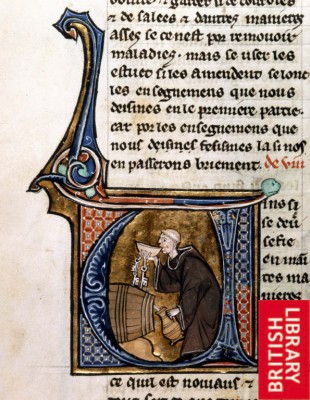 & de salees & dautres manieres
asses se ce nest por remouoir
maladies. mais se user les
estuet si les amendent selonc
les enseignemens que nous
deisimes en le premiere partie.
car por les enseignemens que
nous deisimes fesismes la si nos
en passerons briement. de vin
ins si
se
en mai
tes ma
nieres
ce quil est &
BRITISH
LIBRARY